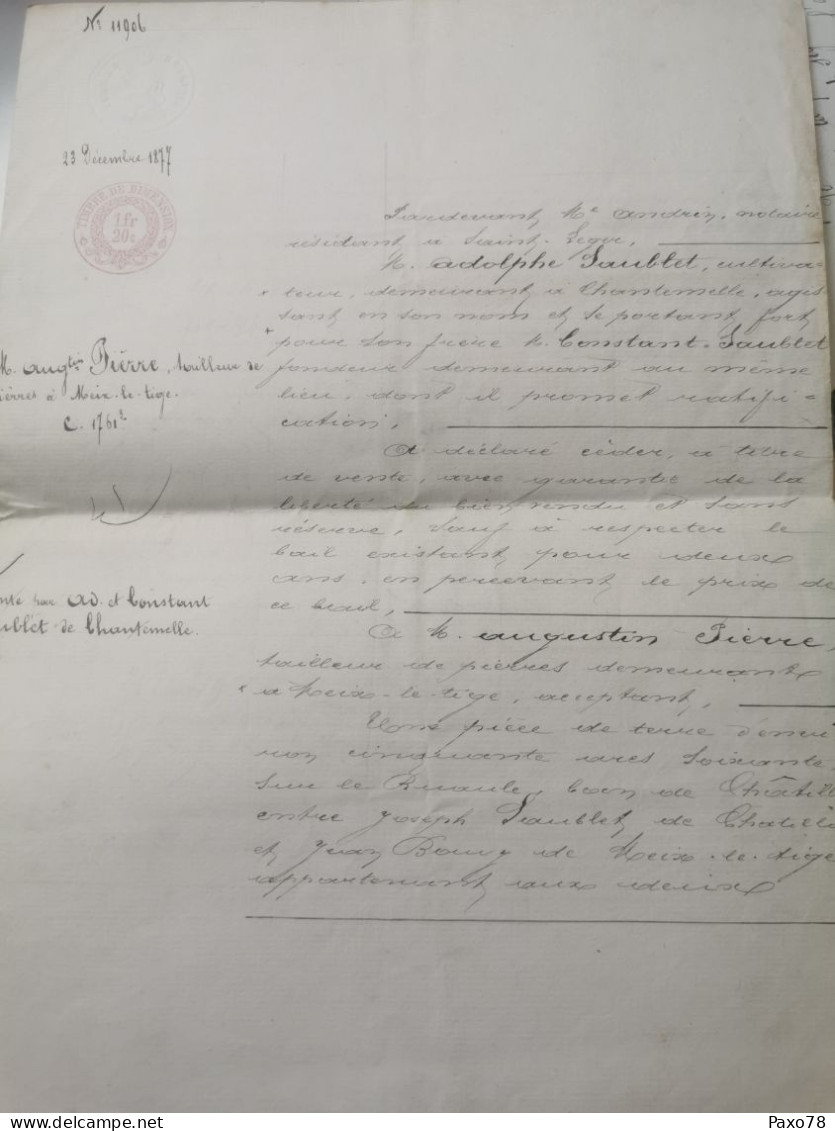 Nº 11906
23 Décembre 1877
TIMBRE DE DIMENSION
1 fr
20 c
M. Augtin Pierre, tailleur de
ierres à Meix-le-tige.
C. 1761
nte par Ad. et Constant
ublet de Chantemelle.
Pardevant Me Andrin, notaire
résidant à Saint-Léger,
M. Adolphe Saublet, cultiva-
teur, demeurant à Chantemelle, agis
sant en son nom et se portant fort
pour son frère M. Constant Saublet
fondeur demeurant au même
lieu, dont il promet ratifi-
cation,
A déclaré céder, à titre
de vente, avec garantie de la
liberté du bien vendu et sans
réserve, sauf à respecter le
bail existant pour deux
ans, en percevant le prix de
ce bail,
A M. Augustin Pierre,
tailleur de pierres demeurant
à Meix-le-tige, acceptant,
Une pièce de terre d'envi
ron cinquante ares soixante
sur le ban de Châtill
entre Joseph Saublet, de Chatill
et Jean Bouvy de Meix-le-tige
appartenant aux deux
Paxo78